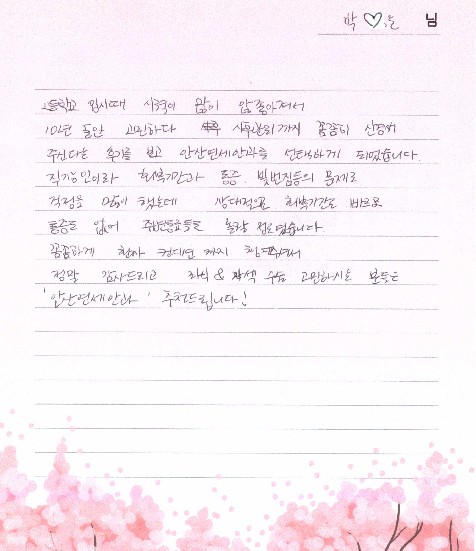 박♡운 님
고등학교 입시때 시력이 많이 안좋아져서
10년 동안 고민하다 사후관리까지 꼼꼼히 신경써
주신다는 후기를 보고 안산연세안과를 선택하게 되었습니다.
직장인이라 회복기간과 통증, 빛번짐등의 문제로
걱정을 많이 했는데 상대적으로 회복기간도 빠르고
통증도 없어
꼼꼼하게 한자 한자 까지
정말 감사드리고 라식 & 라섹 수술 고민하시는 분들은
'안산연세안과' 추천드립니다!